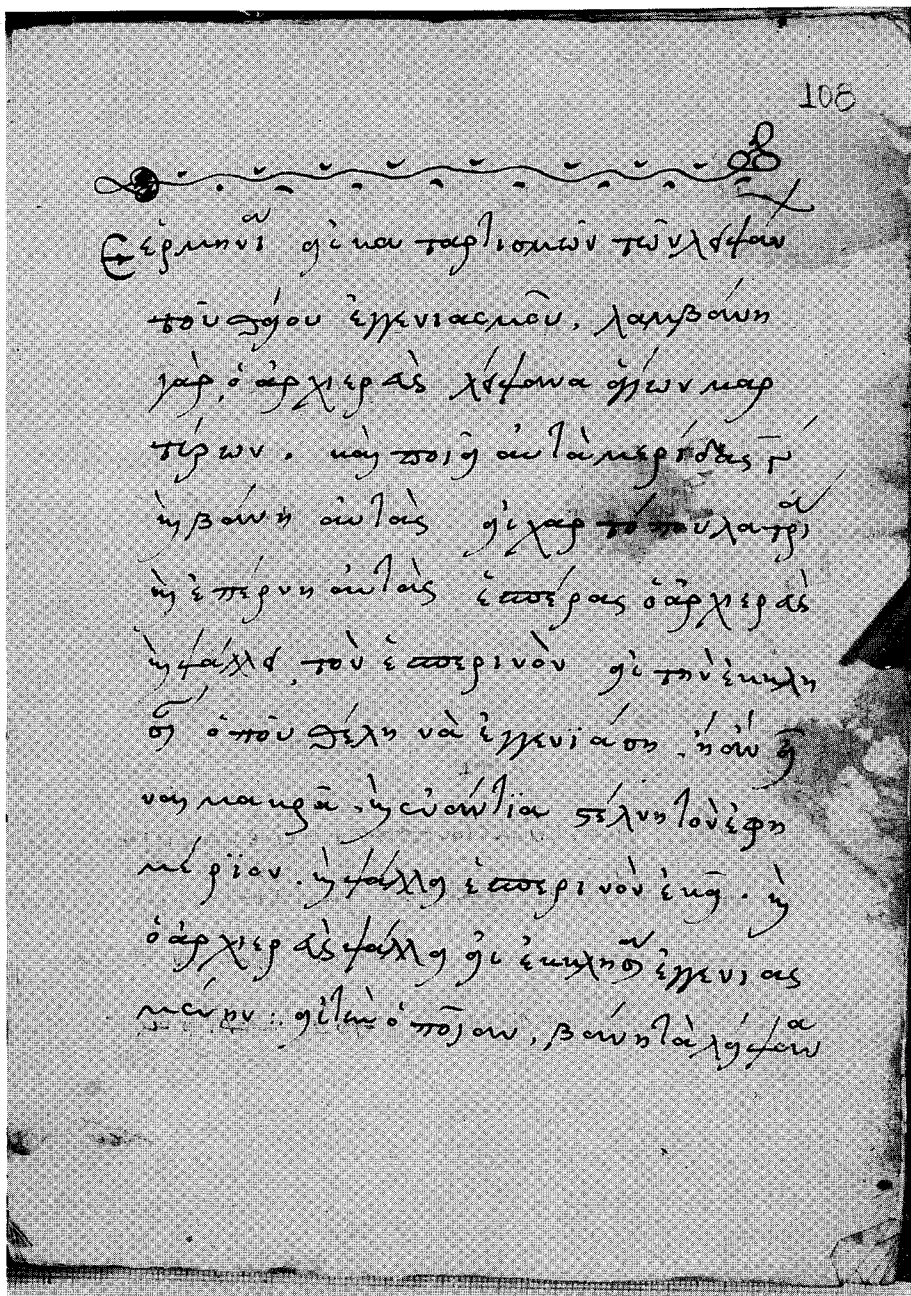 108
Ἑρμηνία εἰς καταρτισμὸν τῶν λειψάν
τοῦ θείου ἐγγενιασμοῦ. λαμβάνη
γὰρ, ὁ ἀρχιερεὺς λείψανα ἁγίων μαρ
τίρων. καὶ ποιεῖ αὐτὰ μερίδας γ´
κ(αὶ) βάνη αὐτὰς εἰ χαρτὶ
κ(αὶ) ἐπέρνη αὐτὰς ἑσπέρας ὁ ἀρχιερεὺς
κ(αὶ) ψάλλει τὸν ἑσπερινὸν εἰ τὴν ἐκκλη
σ ὁποῦ θέλη νὰ ἐγγενιάση. ἢ ἂν εἶ
ναι μακρᾶ. στέλνη τὸν ἐφη
μέριον. κ(αὶ) ψάλλει ἑσπερινὸν ἐκεῖ. κ(αὶ)
ὁ ἀρχιερεὺς ψάλλει εἰ ἐκκλησ ἐγγενιας
μένην: εἰ τὴν ὁποίαν, βάνη τὰ λείψανα